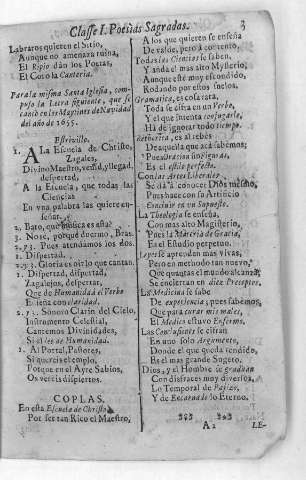 Classe I. Poesias Sagradas. 3
Labraros quieren el Sitio,
Aunque no amenaza ruina,
El Ripio dàn los Poetas,
El Coro la Canteria.
Para la misma Santa Iglesia, com-
puso la Letra siguiente, que se
cantò en los Maytines de Navidad
del año de 1655.
Estrivillo.
1. A La Escuela de Christo,
Zagales,
Divino Maestro, venid, y llegad,
despertad,
A la Escuela, que todas las
Ciencias
En vna palabra las quiere en-
señar.
2. Bato, que musica es aquesta?
3. Nosè, porque duermo, Bras.
2. y 3. Pues atendamos los dos.
1. Dispertad.
2. y 3. Gloria es oir lo que cantan.
1. Dispertad, dispertad,
Zagalejos, despertar,
Que de Humanidad el Verbo
Es lena con claridad.
2. y 3. Sonoro Clarin del Cielo,
Instrumento Celestial,
Cantemos Divinidades,
Si el lee de Humanidad.
1. Al Portal, Pastores,
Si quereis el templo,
Porque en el Ayre Sabios,
Os vereis dispiertos.
COPLAS.
En esta Escuela de Christo,
Por ser tan Rico el Maestro,
A los que quieren se enseña
De valde, pero à contento.
Todas las Ciencias se saben,
Y anda el mas alto Mysterio,
Aunque estè muy escondido,
Rodando por estos suelos.
Gramatica, es cosa rara,
Toda se cifra en un Verbo,
Y el que intenta conjugarle,
Hà de ignorar todo tiempo.
Rethorica, es al rebès
De aquella que acà sabemos;
Pues Oracion sin figuras,
Es el estilo perfecto.
Con las Artes Liberales
Se dà à conocer Dios mesmo,
Pues hace con su Artificio
Encluir en un Supuesto.
La Theologia se enseña,
Con mas alto Magisterio,
Pues la Materia de Gracia,
Es el Estudio perpetuo.
Leyes se aprenden mas vivas,
Pero en methodo tan nuevo,
Que quantas el mundo alcanza
Se encierran en diez Preceptos.
La Medicina se sabe
De experiencia; pues sabemos,
Que para curar mis males,
El Medico estuvo Enfermo.
Las Conclusiones se cifran
En uno solo Argumento,
Donde el que queda cendido,
Es el mas grande Sugeto.
Dios, y el Hombre se graduan
Con disfraces muy diversos,
Lo Temporal de Passion,
Y de Encarnado lo Eterno.
A 2 LE-